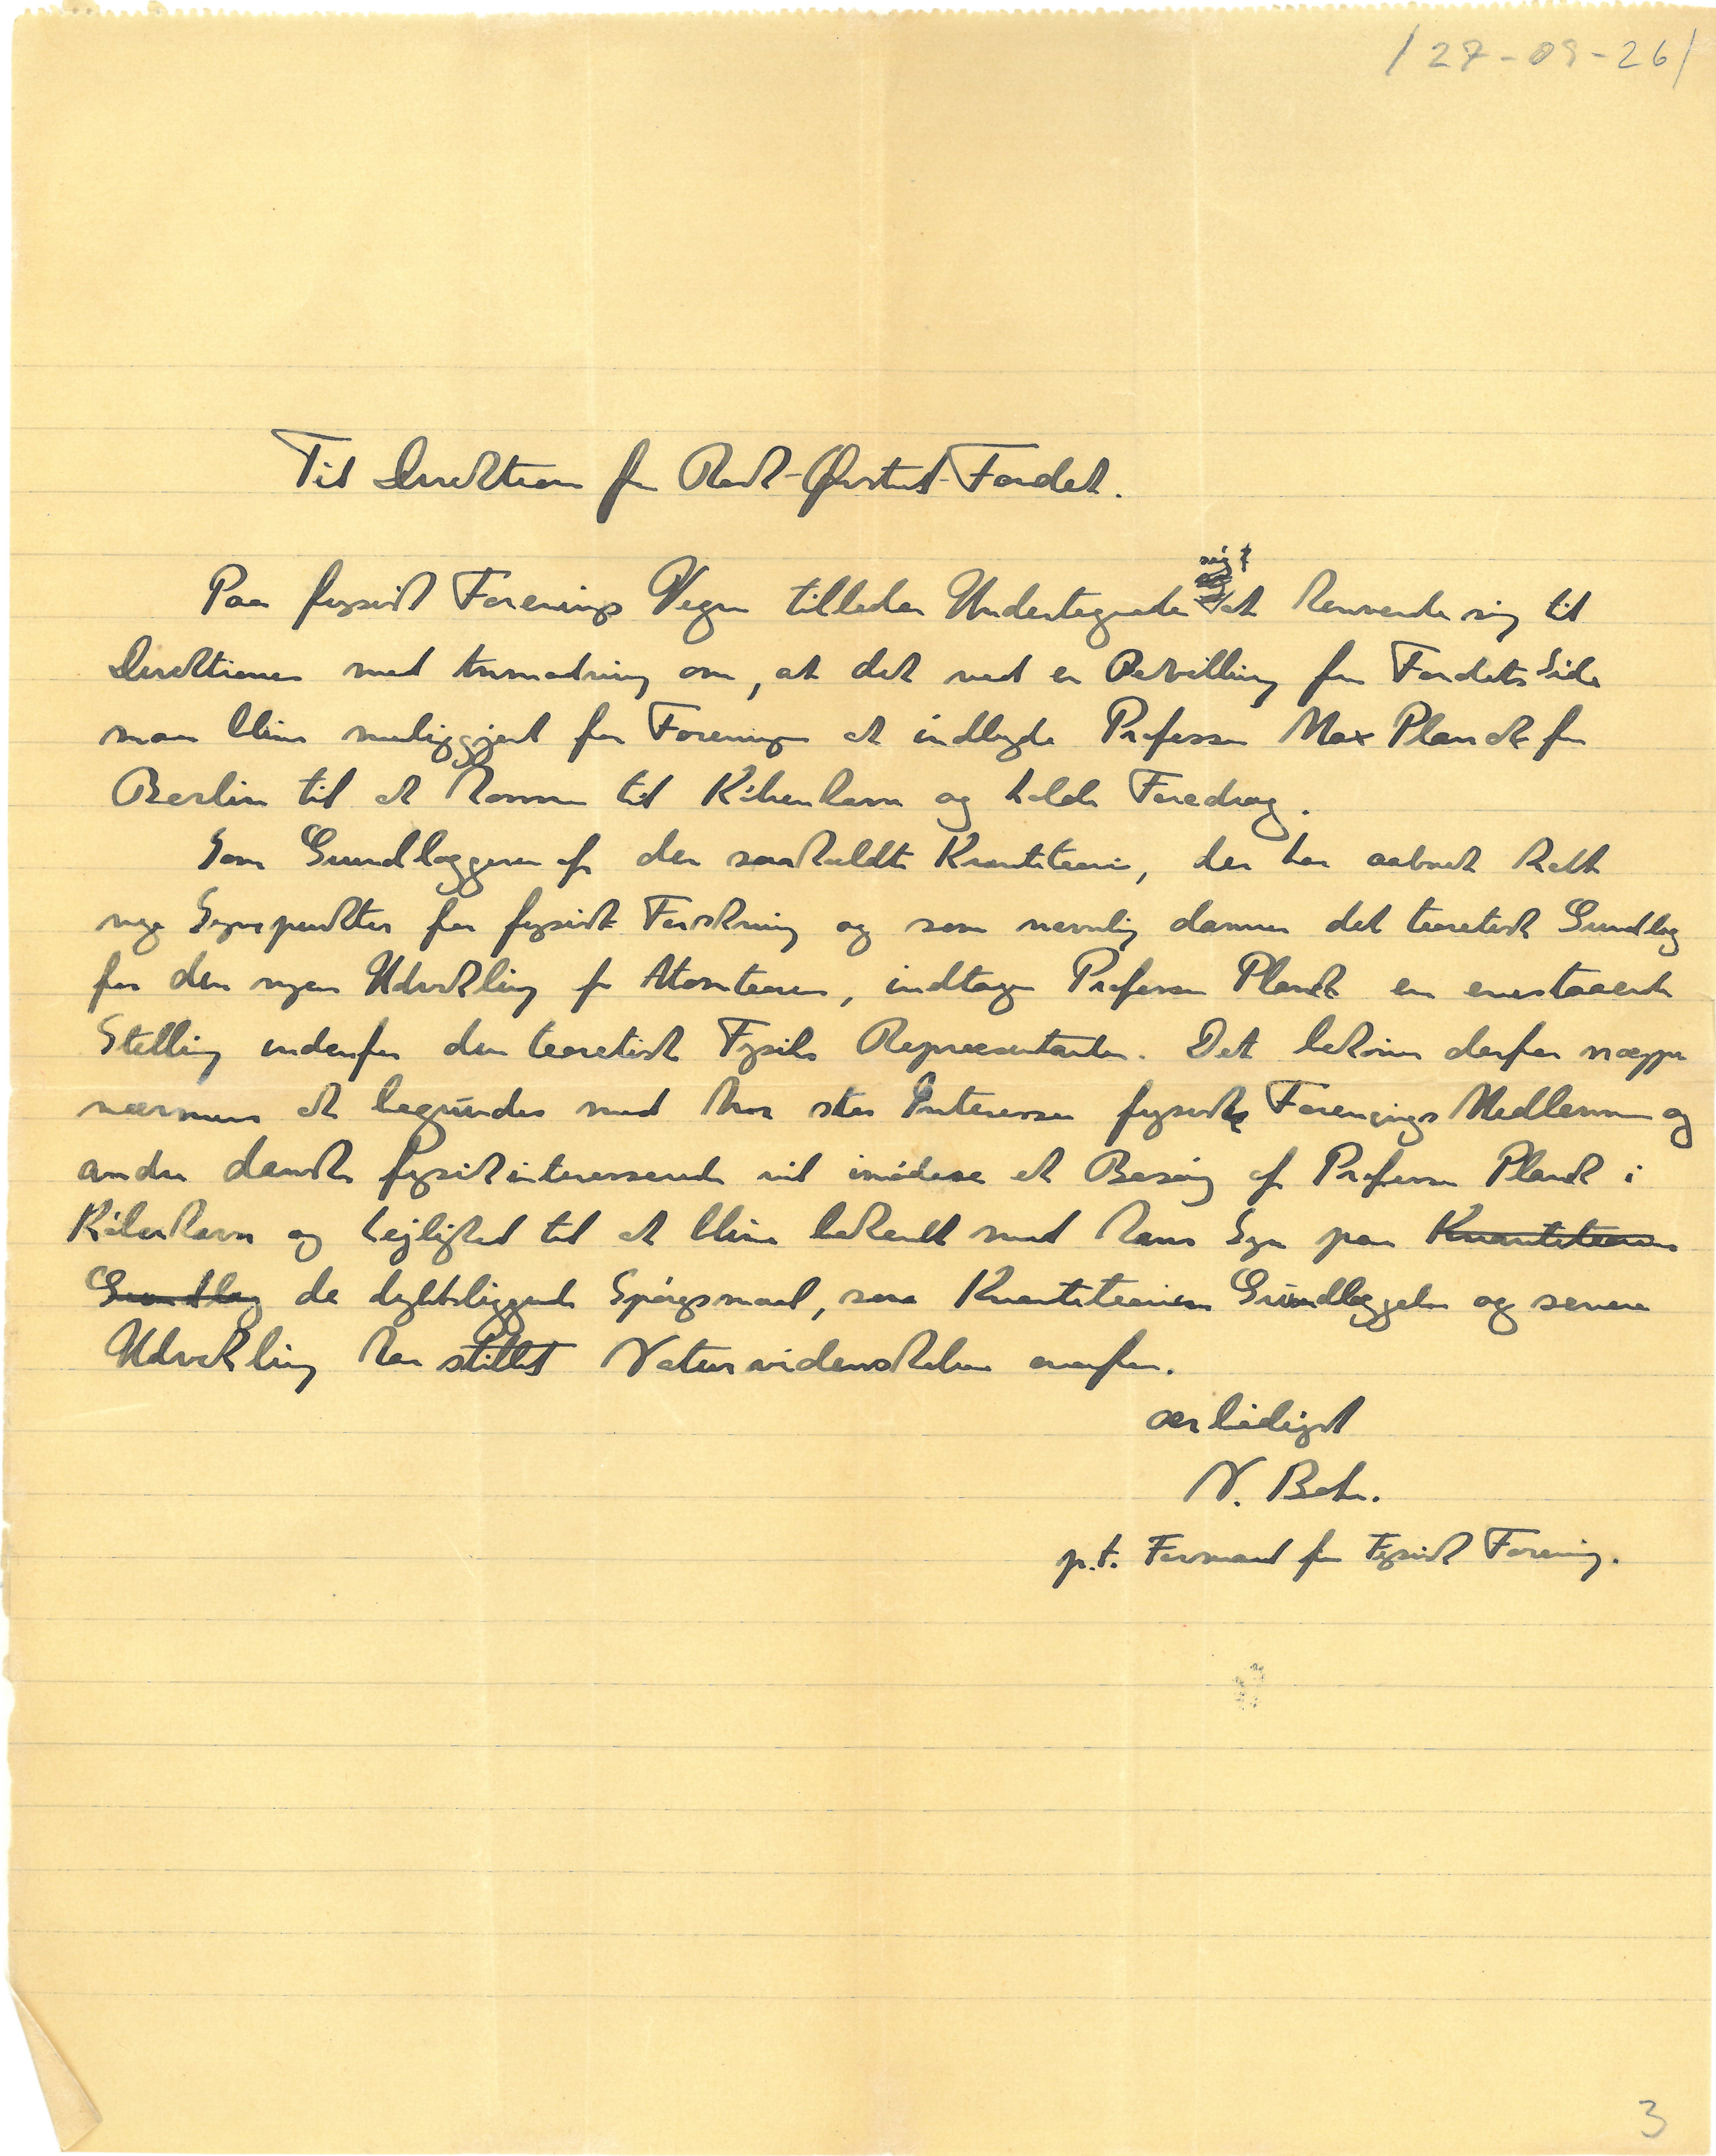 /27-09-26/
Til Direktionen for Rask-Ørsted-Fondet.
sig
Paa fysisk Forenings Vegne tillader Undertegnede at henvende sig til
Direktionen med Anmodning om, at det ved en Bevilling fra Fondets Side
maa blive muliggjort for Foreningen at indbyde Professor Max Planck fra
Berlin til at komme til København og holde Foredrag.
Som Grundlæggeren af den saakaldte Kvanteteori, der har aabnet helt
nye Synspunkter for fysisk Forskning og som navnlig danner det teoretiske Grundlag
for den nyere Udvikling af Atomteorien, indtager Professor Planck en enestaaende
Stilling indenfor den teoretiske Fysiks Repræsentanter. Det behøver derfor næppe
nærmere at begrundes med hvor stor Interesse fysisk Forenings Medlemmer og
andre danske fysikinteresserede vil imødese et Besøg af Professor Planck i
København og Lejlighed til at blive bekendt med hans Syn paa Kvanteteoriens
Grundlag de dybtliggende Spørgsmaal, som Kvanteteoriens Grundlæggelse og senere
Udvikling har stillet Naturvidenskaben overfor.
ærbødigst
N. Bohr.
p.t. Formand for Fysisk Forening.
3